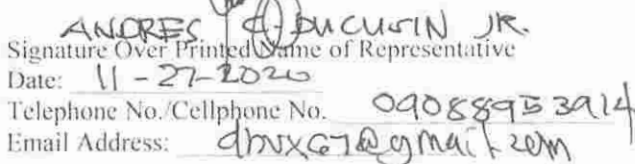 ANDRES DUCUSIN JR.
Signature Over Printed Name of Representative
Date: 11-27-2020
Telephone No./Cellphone No. 09088953914
Email Address: